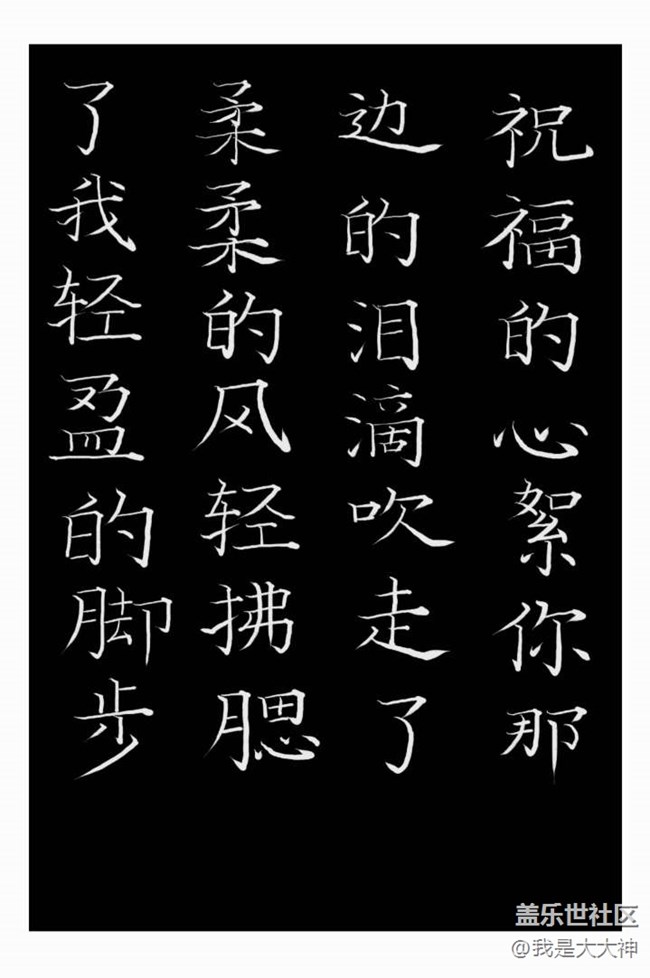 了我轻盈的脚步
柔柔的风轻拂腮
边的泪滴吹走了
祝福的心絮你那
盖乐世社区
@我是大大神